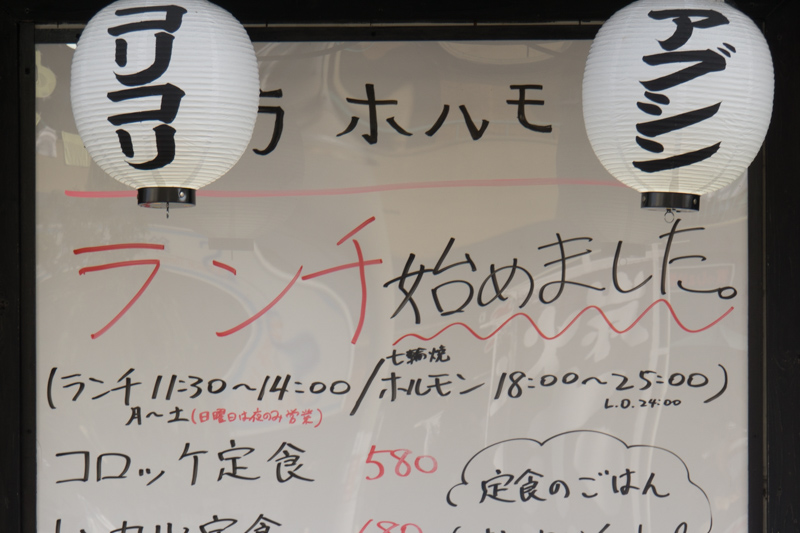 コリコリ
アブシン
ラ ホルモ
ランチ始めました。
七輪焼
(ランチ 11:30〜14:00/ホルモン 18:00〜25:00)
月〜土(日曜日は夜のみ営業)
L.O. 24:00
コロッケ定食 580
定食のごはん
定食 680